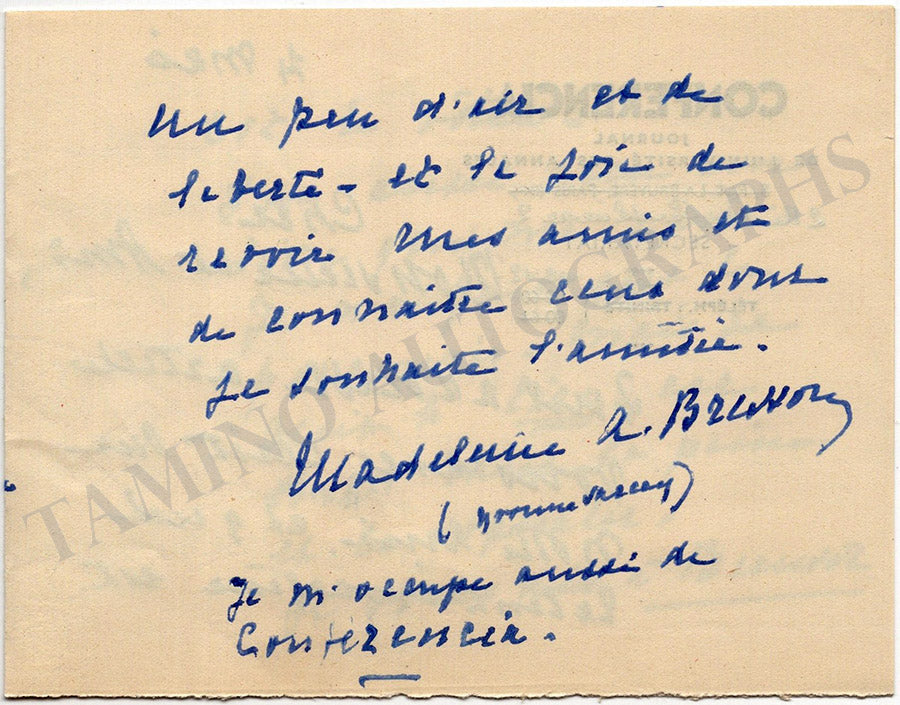 un peu d'air et de
liberté - et la joie de
revoir mes amis et
de connaître ceux dont
je souhaite l'amitié.
Madeleine A. Brisson
(Yvonne Sarcey)
Je m'occupe aussi de
Conferencia.
TAMINO AUTOGRAPHS
CONFERENCIA
JOURNAL